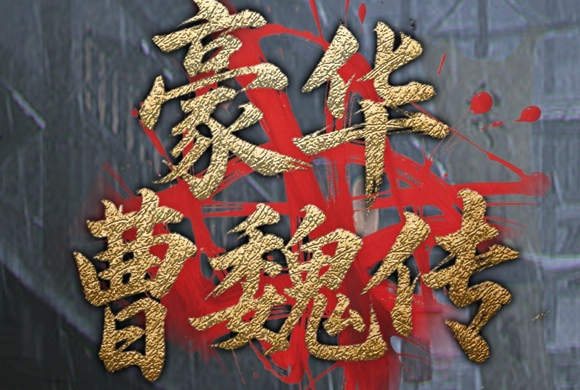 豪华
曹魏传